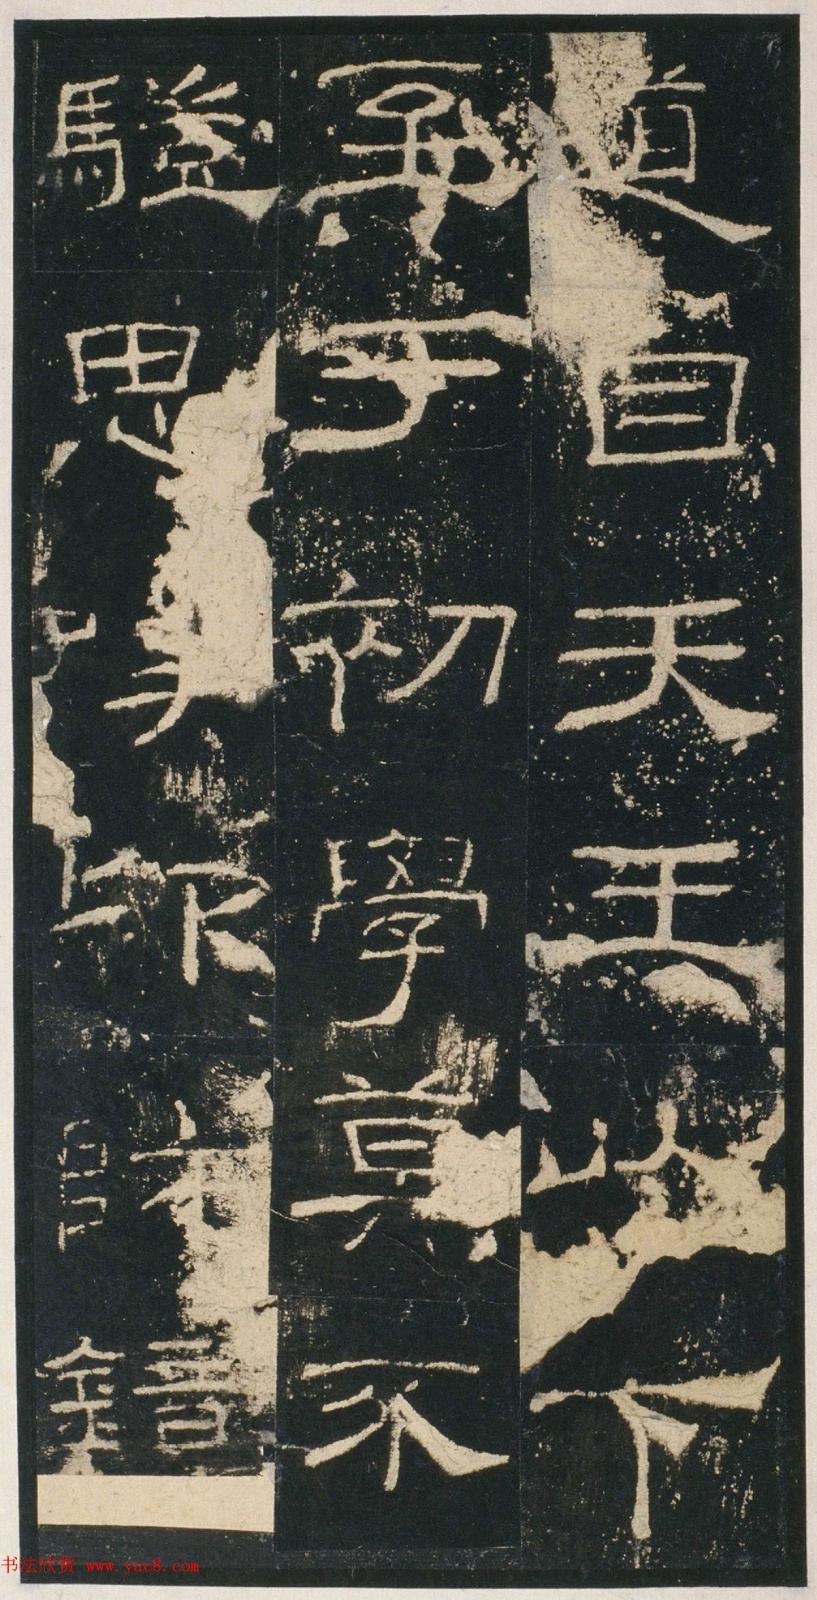 道自天王以下
至于初學莫不
驥思嘆卬師鏡
书法欣赏 www.yac8.com